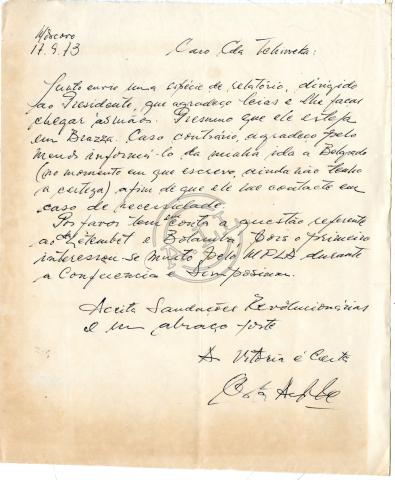 Moscovo
17.9.73
Caro Cda Tchiweka:
Junto envio uma espécie de relatório, dirigido
ao Presidente, que agradeço leias e lhe faças
chegar às mãos. Presumo que ele esteja
em Brazza. Caso contrário, agradeço pelo
menos informá-lo da minha ida a Belgrado
(no momento em que escrevo, ainda não tenho
a certeza), afim de que ele me contacte em
caso de necessidade.
Por favor tem em conta a questão referente
ao e pois o primeiro
interessou-se muito pelo MPLA durante
a Conferencia e Simposium.
Aceita Saudações Revolucionárias
e um abraço forte
A Vitória é Certa